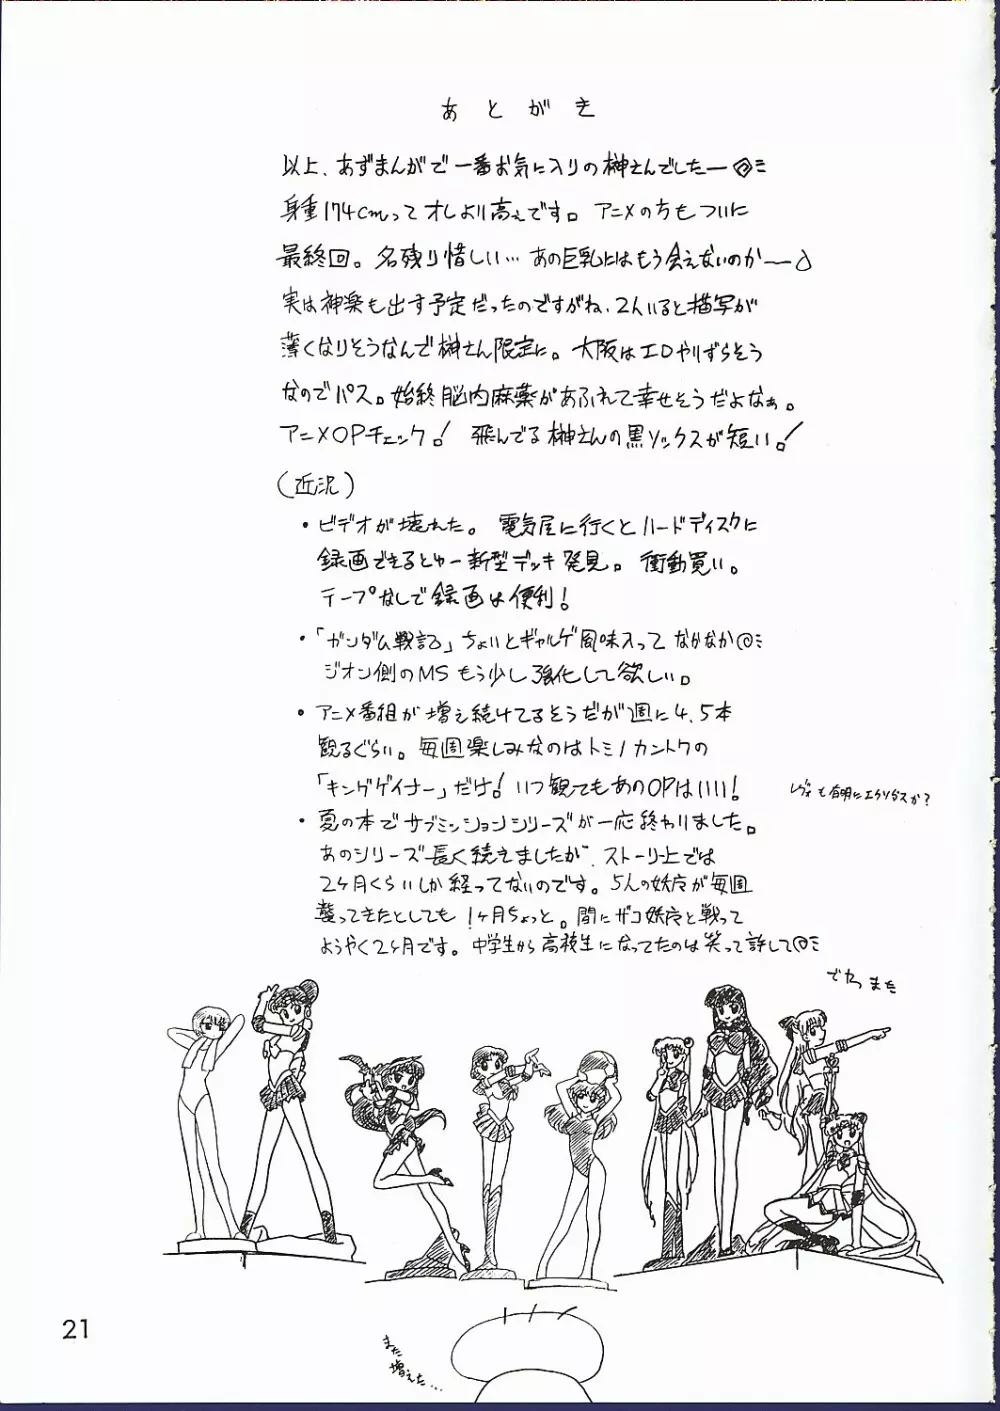 あとがき
以上、あずまんがで一番お気に入りの榊さんでしたー@ミ
身重174cmってオレより高ぇです。アニメの方もついに
最終回。名残り惜しい…あの巨乳にはもう会えないのかーー
実は神楽も出す予定だったのですがね、2人いると描写が
薄くなりそうなんで榊さん限定に。大阪はエロやりずらそう
なのでパス。始終脳内麻薬があふれて幸せそうだよなぁ。
アニメOPチェック! 飛んでる榊さんの黒ソックスが短い!
(近況)
・ビデオが壊れた。電気屋に行くとハードディスクに
録画できるとゆー新型デッキ発見。衝動買い。
テープなしで録画は便利!
・「ガンダム戦記」ちょいとギャルゲ風味入ってなかなか@ミ
ジオン側のMSもう少し強化して欲しい。
・アニメ番組が増え続けてるそうだが週に4,5本
観るぐらい。毎週楽しみなのはトミノカントクの
「キングゲイナー」だけ!いつ観てもあのOPはいい!
レヴォも有明にエクソダスか?
・夏の本でサブミッションシリーズが一応終わりました。
あのシリーズ長く続えましたが、ストーリ上では
2ヶ月くらいしか経ってないのです。5人の妖魔が毎週
襲ってきたとしても1ヶ月ちょっと。間にザコ妖魔と戦って
ようやく2ヶ月です。中学生から高校生になってたのは笑って許して@ミ
でわっまた
また
増えた…
21